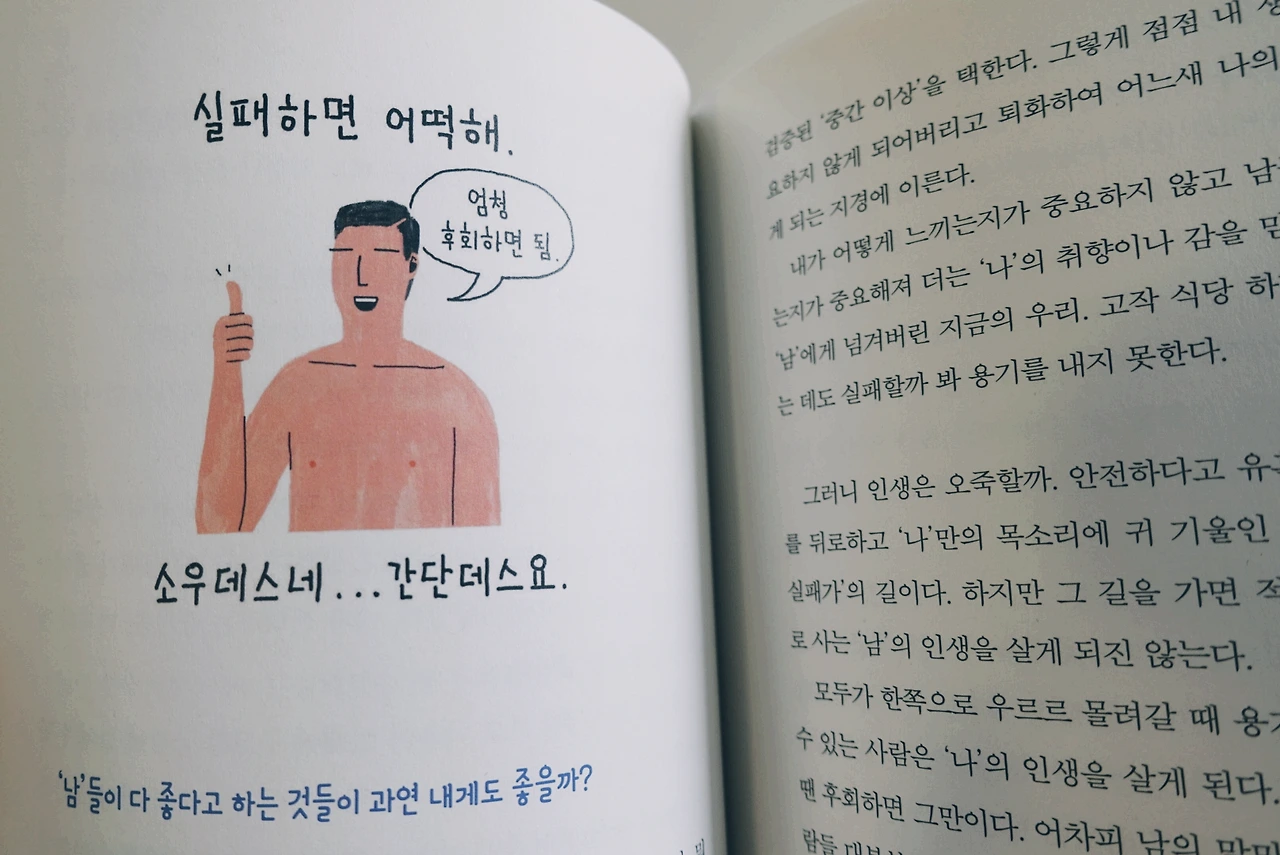 실패하면 어떡해.
엄청
후회하면 됨.
소우데스네...간단데스요.
‘남’들이 다 좋다고 하는 것들이 과연 내게도 좋을까?
검증된 ‘중간 이상’을 택한다. 그렇게 점점 내
요하지 않게 되어버리고 퇴화하여 어느새 나의
게 되는 지경에 이른다.
내가 어떻게 느끼는지가 중요하지 않고
는지가 중요해져 더는 ‘나’의 취향이나 감을
‘남’에게 넘겨버린 지금의 우리. 고작 식당
는 데도 실패할까 봐 용기를 내지 못한다.
그러니 인생은 오죽할까. 안전하다고
를 뒤로하고 ‘나’만의 목소리에 귀 기울인
실패가’의 길이다. 하지만 그 길을 가면
로 사는 ‘남’의 인생을 살게 되진 않는다.
모두가 한쪽으로 우르르 몰려갈 때
수 있는 사람은 ‘나’의 인생을 살게 된다.
땐 후회하면 그만이다. 어차피 남의
람들